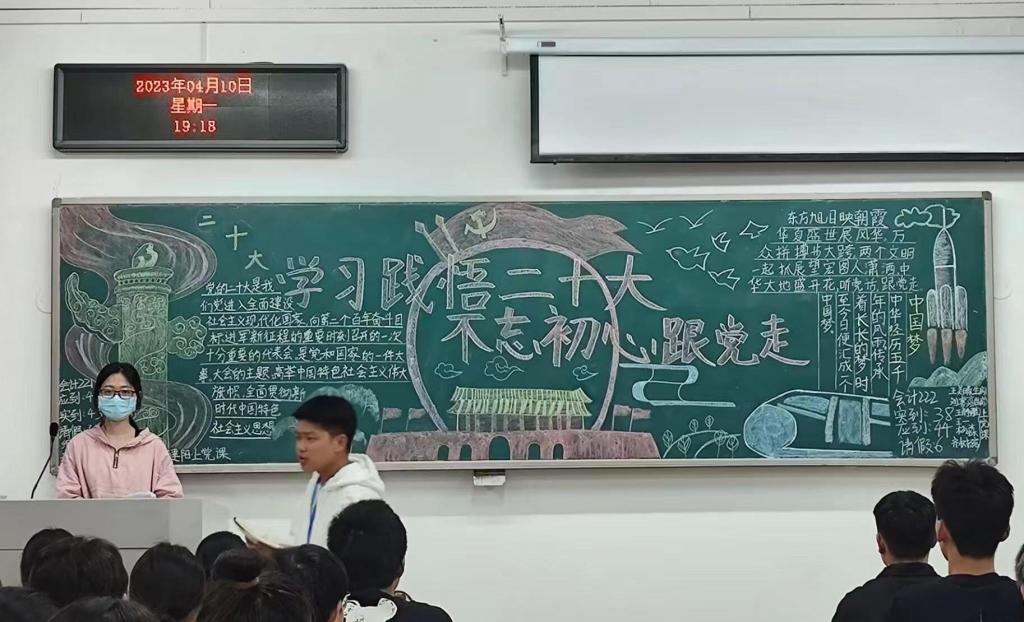 2023年04月10日
星期一
19:18
二十大
学习践悟二十大
不忘初心 跟党走
党的二十大是我
们党进入全面建设
社会主义现代化国家、向第二个百年奋斗目
标进军新征程的重要时刻召开的一次
十分重要的代表会,是党和国家的一件大
事,大会的主题,高举中国特色社会主义伟大
旗帜,全面贯彻新
时代中国特色
社会主义思想
会计22
应到
实到:4
请假
上党课
东方旭日映朝霞
华夏盛世展风华万
众拼搏步大跨两个文明
一起抓展望宏图人
华大地盛开花,听党话跟党走
中国梦
中华经历五千
年的风雨传承
着长长的梦,时
至今日便汇成一个
中国梦.
会计222
实到:38
应到:44
请假6